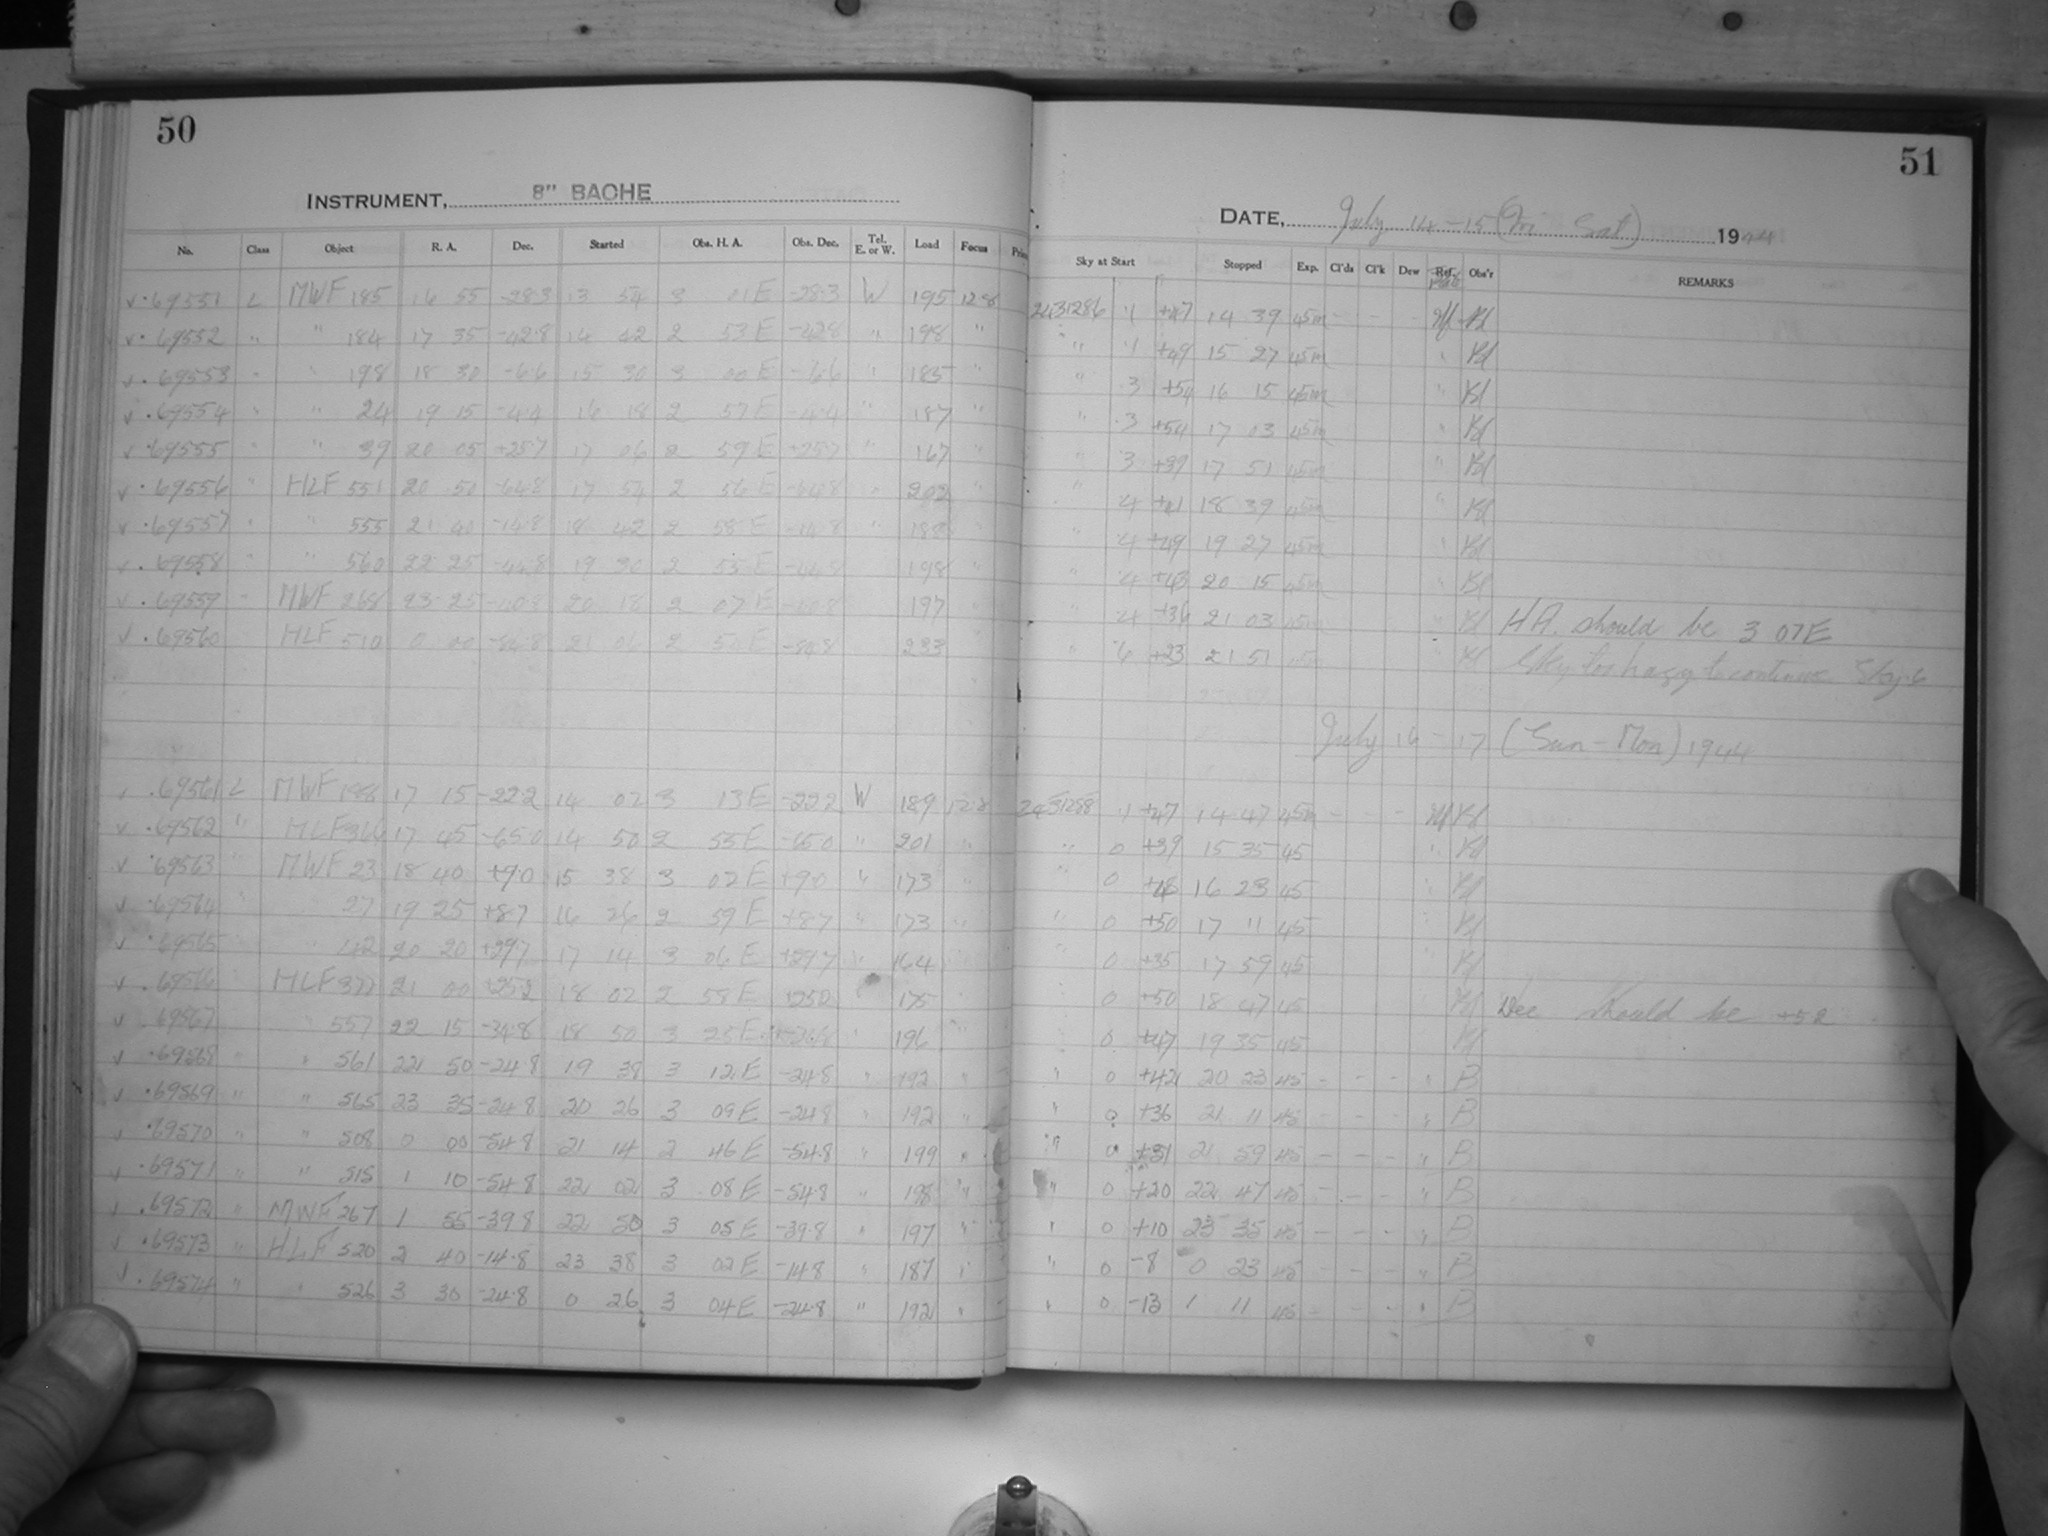 50
INSTRUMENT, 8" BACHE
No. Class Object R. A. Dec. Started Obs. H. A. Obs. Dec. Tel. E. or W. Load Focus
69551 L MWF 185 16 55 -28.3 13 54 3 01 E -28.3 W 195 12.8
69552 " " 184 17 35 -42.8 14 42 2 53 E -42.8 " 198 "
69553 " " 198 18 30 -6.6 15 30 3 00 E -6.6 " 185 "
69554 " " 24 19 15 -4.4 16 18 2 57 E -4.4 " 187 "
69555 " " 39 20 05 +25.7 17 06 2 59 E +25.7 " 167 "
69556 " HLF 551 20 50 -64.8 17 54 2 56 E -64.8 " 202 "
69557 " " 555 21 40 -14.8 18 42 2 58 E -14.8 "
69558 " " 560 22 25 -44.8 19 30 2 55 E -44.8 198 "
69559 " MWF 268 23 25 20 18 2 07 E 197
69560 HLF 510 0 00 -84.8 21 06 2 54 E -84.8 233
69561 L MWF 188 17 15 -22.2 14 02 3 13 E -22.2 W 189 12.8
69562 " HLF 366 17 45 -65.0 14 50 2 55 E -65.0 " 201 "
69563 " MWF 23 18 40 +9.0 15 38 3 02 E +9.0 " 173 "
69564 27 19 25 +8.7 16 26 2 59 E +8.7 " 173 "
69565 " 42 20 20 +29.7 17 14 3 06 E +29.7 " 164
69566 HLF 377 21 00 +25.2 18 02 2 58 E 175
69567 " 557 22 15 -34.8 18 50 3 25 E 196 "
69568 " " 561 22 50 -24.8 19 38 3 12 E -24.8 " 192 "
69569 " " 565 23 35 -24.8 20 26 3 09 E -24.8 " 192 "
69570 " " 508 0 00 -54.8 21 14 2 46 E -54.8 " 199 "
69571 " " 515 1 10 -54.8 22 02 3 08 E -54.8 " 198 "
69572 " MWF 267 1 55 -39.8 22 50 3 05 E -39.8 " 197 "
69573 " HLF 520 2 40 -14.8 23 38 3 02 E -14.8 " 187 "
69574 " " 526 3 30 -24.8 0 26 3 04 E -24.8 " 192 "
51
DATE, July 14-15 (Fri Sat) 1944
Sky at Start Stopped Exp. Cl'ds Cl'k Dew Obs'r REMARKS
2431286 .1 +47 14 39 45m - - - Kd
" .1 +49 15 27 45m " Kd
" .3 +54 16 15 45m " Kd
" .3 +54 17 03 45m " Kd
" 3 +39 17 51 45m " Kd
" 4 +41 18 39 45m " Kd
" 4 +49 19 27 45m " Kd
" 4 +46 20 15 45m " Kd
" 4 +34 21 03 45m " Kd HA. should be 3 07 E
" 6 +23 21 51 45m " Kd Sky too hazy to continue Sky 6
July 16-17 (Sun-Mon) 1944
2431288 .1 +47 14 47 45m - - - Kd
" 0 +39 15 35 45 " Kd
" 0 +48 16 23 45 " Kd
" 0 +50 17 11 45 " Kd
" 0 +35 17 59 45 " Kd
" 0 +50 18 47 45 " Kd Dec should be +5.2
" 0 +47 19 35 45 " Kd
" 0 +42 20 23 45 - - - " B
" 0 +36 21 11 45 - - - " B
" 0 +31 21 59 45 - - - " B
" 0 +20 22 47 45 - - - " B
" 0 +10 23 35 45 - - - " B
" 0 -8 0 23 45 - - - " B
" 0 -13 1 11 45 - - - " B